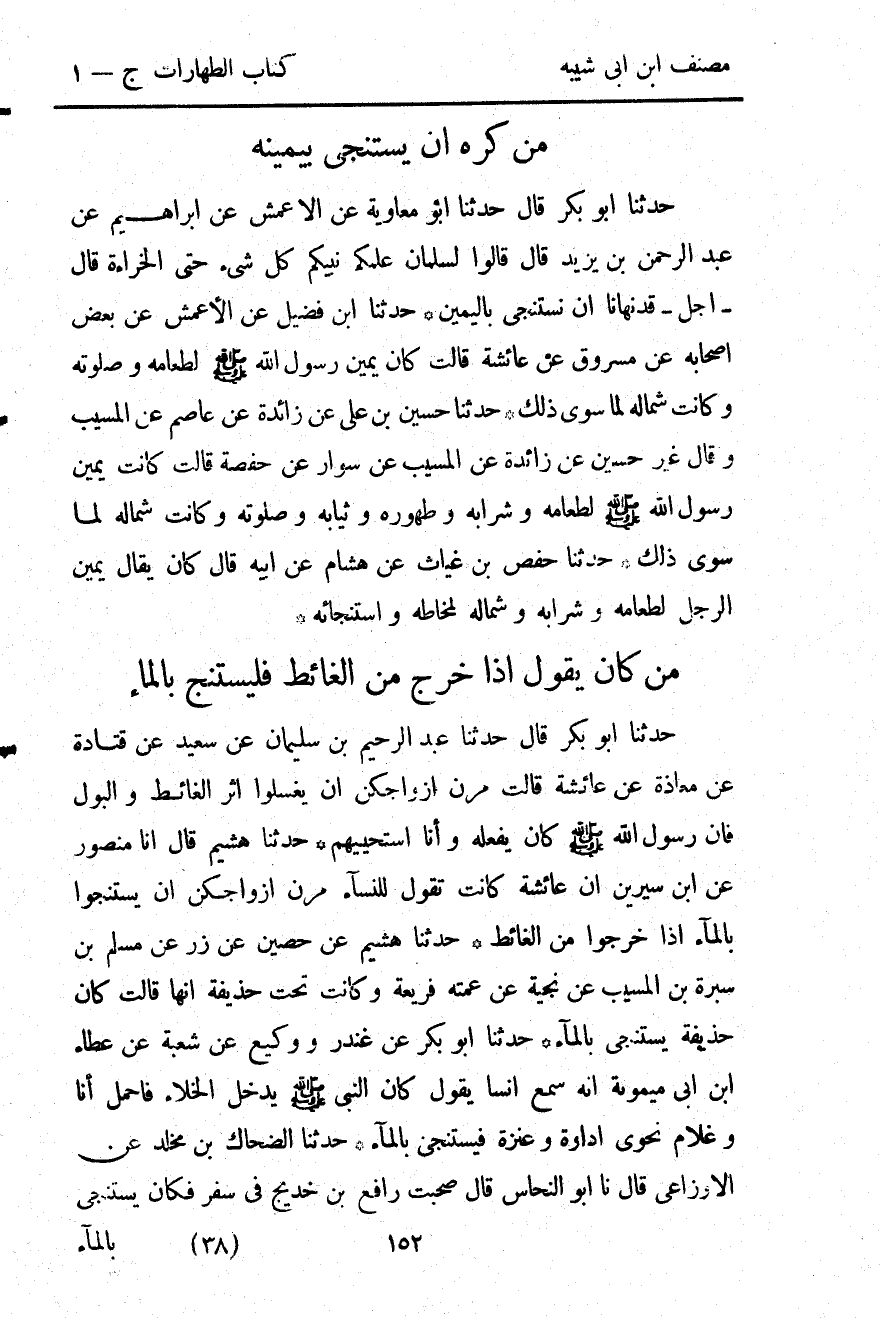 مصنف ابن ابى شيبه كتاب الطهارات ج — ١
من كره ان يستنجى بيمينه
حدثنا ابو بكر قال حدثنا ابو معاوية عن الاعمش عن ابراهيم عن
عبد الرحمن بن يزيد قال قالوا لسلمان علمكم نبيكم كل شىء حتى الخراءة قال
ـ اجل ـ قدنهانا ان نستنجى باليمين * حدثنا ابن فضيل عن الأعمش عن بعض
اصحابه عن مسروق عن عائشة قالت كان يمين رسول الله ﷺ لطعامه و صلوته
و كانت شماله لما سوى ذلك * حدثنا حسين بن على عن زائدة عن عاصم عن المسيب
و قال غير حسين عن زائدة عن المسيب عن سوار عن حفصة قالت كانت يمين
رسول الله ﷺ لطعامه و شرابه و طهوره و ثيابه و صلوته و كانت شماله لما
سوى ذلك * حدثنا حفص بن غياث عن هشام عن ابيه قال كان يقال يمين
الرجل لطعامه و شرابه و شماله لمخاطه و استنجائه *
من كان يقول اذا خرج من الغائط فليستنج بالماء
حدثنا ابو بكر قال حدثنا عبد الرحيم بن سليمان عن سعيد عن قتادة
عن معاذة عن عائشة قالت مرن ازواجكن ان يغسلوا اثر الغائط و البول
فان رسول الله ﷺ كان يفعله و أنا استحييهم * حدثنا هشيم قال انا منصور
عن ابن سيرين ان عائشة كانت تقول للنسآء مرن ازواجكن ان يستنجوا
بالمآء اذا خرجوا من الغائط * حدثنا هشيم عن حصين عن زر عن مسلم بن
سبرة بن المسيب عن نجية عن عمته فريعة و كانت تحت حذيفة انها قالت كان
حذيفة يستنجى بالمآء * حدثنا ابو بكر عن غندر و وكيع عن شعبة عن عطاء
ابن ابى ميمونة انه سمع انسا يقول كان النبى ﷺ يدخل الخلاء فاحمل أنا
و غلام نحوى اداوة و عنزة فيستنجى بالمآء * حدثنا الضحاك بن مخلد عن
الاوزاعى قال نا ابو النحاس قال صحبت رافع بن خديج فى سفر فكان يستنجى
١٥٢ (٣٨) بالمآء